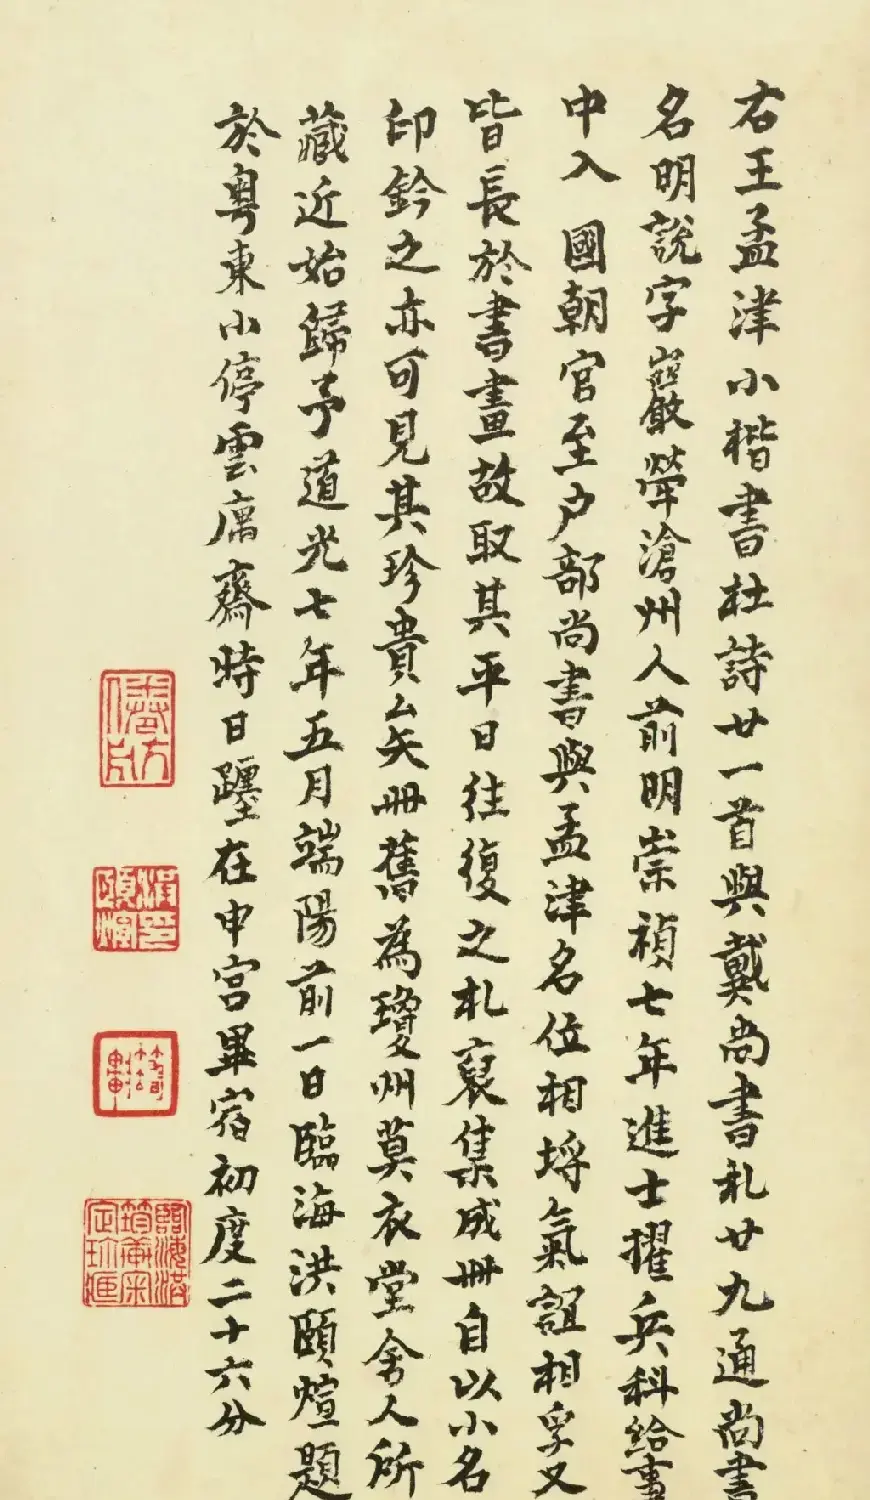 右王孟津小楷書杜詩廿一首與戴尚書札廿九通尚書
名明說字巖犖滄州人前明崇禎七年進士擢兵科給事
中入 國朝官至户部尚書與孟津名位相埒氣誼相孚又
皆長於書畫故取其平日往復之札裒集成冊自以小名
印鈐之亦可見其珍貴矣冊舊為瓊州莫衣堂舍人所
藏近始歸予道光七年五月端陽前一日臨海洪頤煊題
於粵東小停雲寓齋時日躔在申宫畢宿初度二十六分
洪頤煊印
筠軒
臨海洪